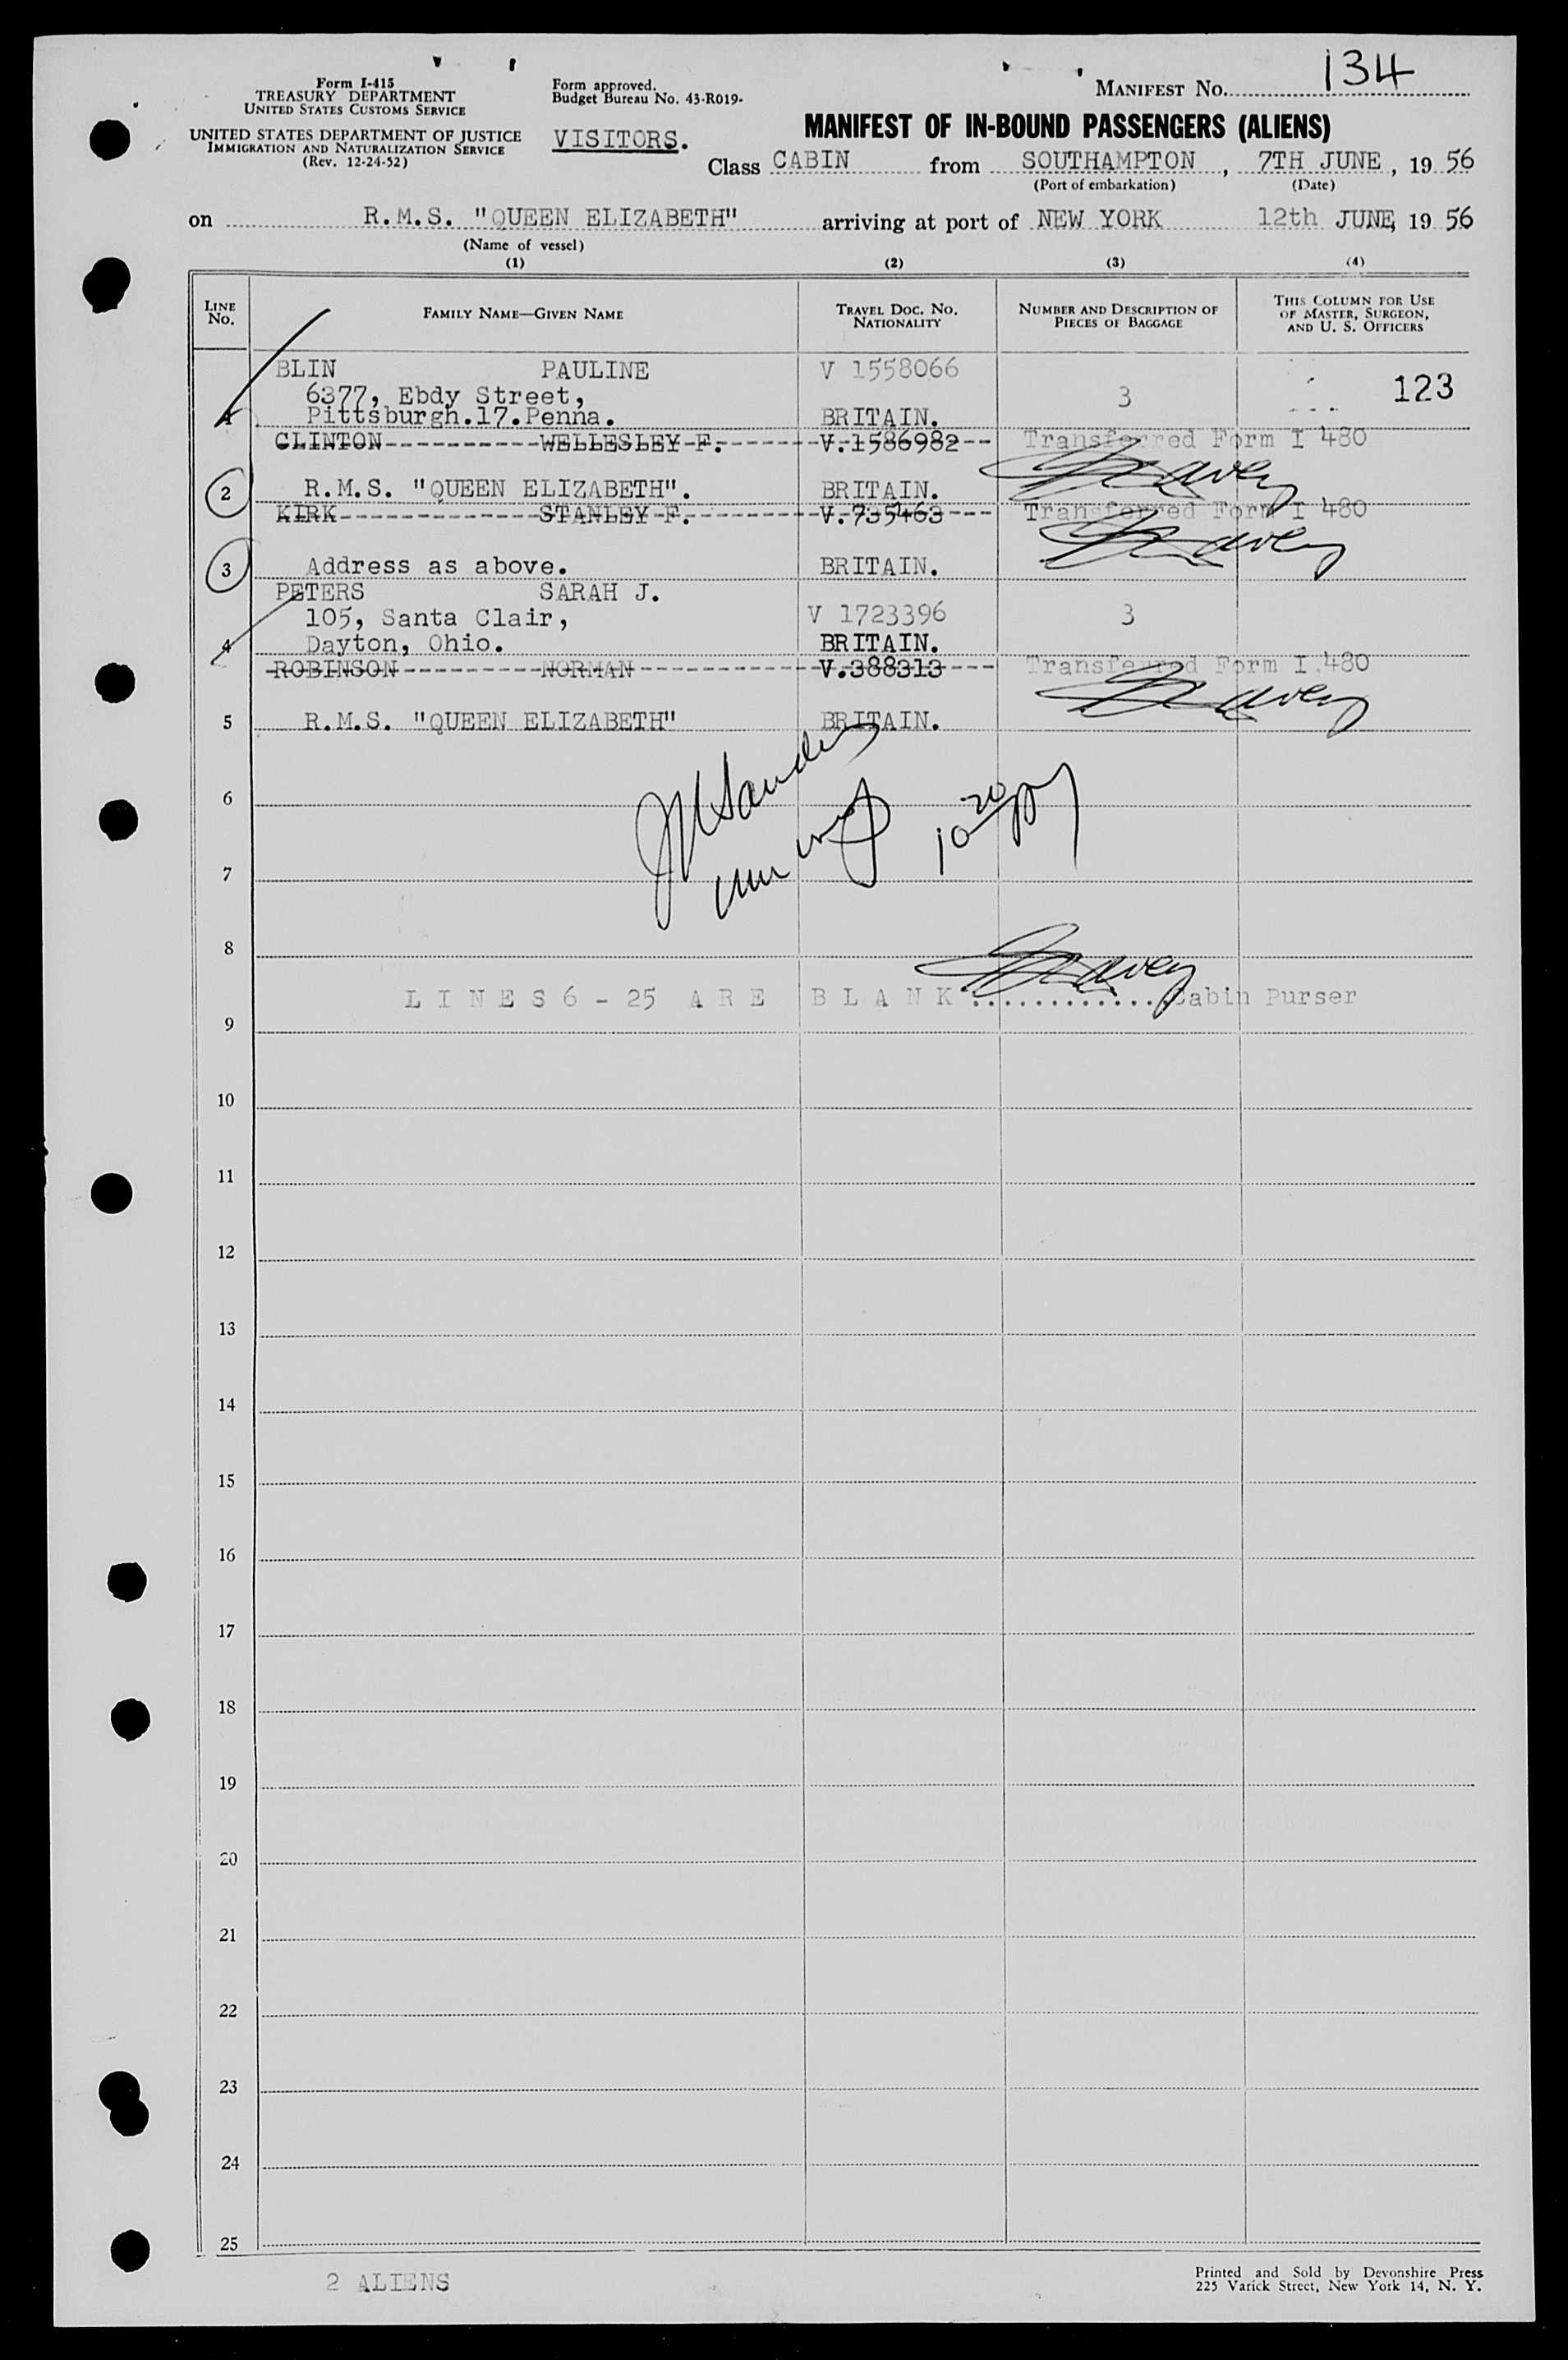 Form I-415
TREASURY DEPARTMENT
UNITED STATES CUSTOMS SERVICE
UNITED STATES DEPARTMENT OF JUSTICE
IMMIGRATION AND NATURALIZATION SERVICE
(Rev. 12-24-52)
Form approved.
Budget Bureau No. 43-R019-
VISITORS.
MANIFEST NO. 134
MANIFEST OF IN-BOUND PASSENGERS (ALIENS)
Class CABIN from SOUTHAMPTON, 7TH JUNE, 19 56
(Port of embarkation) (Date)
on R.M.S. "QUEEN ELIZABETH" arriving at port of NEW YORK 12th JUNE, 19 56
(Name of vessel)
(1) (2) (3) (4)
LINE NO. FAMILY NAME—GIVEN NAME TRAVEL DOC. NO. NATIONALITY NUMBER AND DESCRIPTION OF PIECES OF BAGGAGE THIS COLUMN FOR USE OF MASTER, SURGEON, AND U. S. OFFICERS
BLIN PAULINE V 1558066
6377, Ebdy Street, 3 123
1 Pittsburgh.17.Penna. BRITAIN.
CLINTON-----------WELLESLEY-F.-------V.1586982-- Transferred Form I 480
2 R.M.S. "QUEEN ELIZABETH". BRITAIN.
KIRK--------------STANLEY-F.---------V.735463--- Transferred Form I 480
3 Address as above. BRITAIN.
PETERS SARAH J.
105, Santa Clair, V 1723396 3
4 Dayton, Ohio. BRITAIN.
ROBINSON----------NORMAN-------------V.388313--- Transferred Form I.480
5 R.M.S. "QUEEN ELIZABETH" BRITAIN.
6
7
8
LINES 6 - 25 ARE BLANK..............Cabin Purser
9
10
11
12
13
14
15
16
17
18
19
20
21
22
23
24
25
2 ALIENS
Printed and Sold by Devonshire Press
225 Varick Street, New York 14, N. Y.